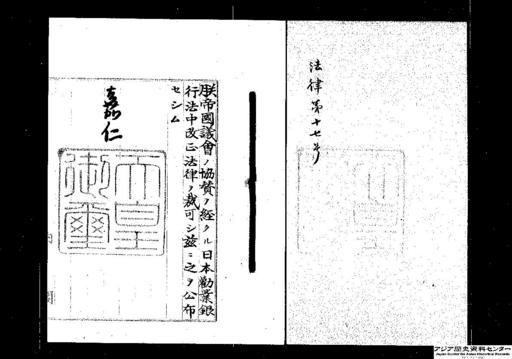 法律第十七号
朕帝國議會ノ協賛ヲ経タル日本勸業銀
行法中改正法律ヲ裁可シ茲ニ之ヲ公布
セシム
嘉仁
天皇
御璽
アジア歴史資料センター
Japan Center for Asian Historical Records